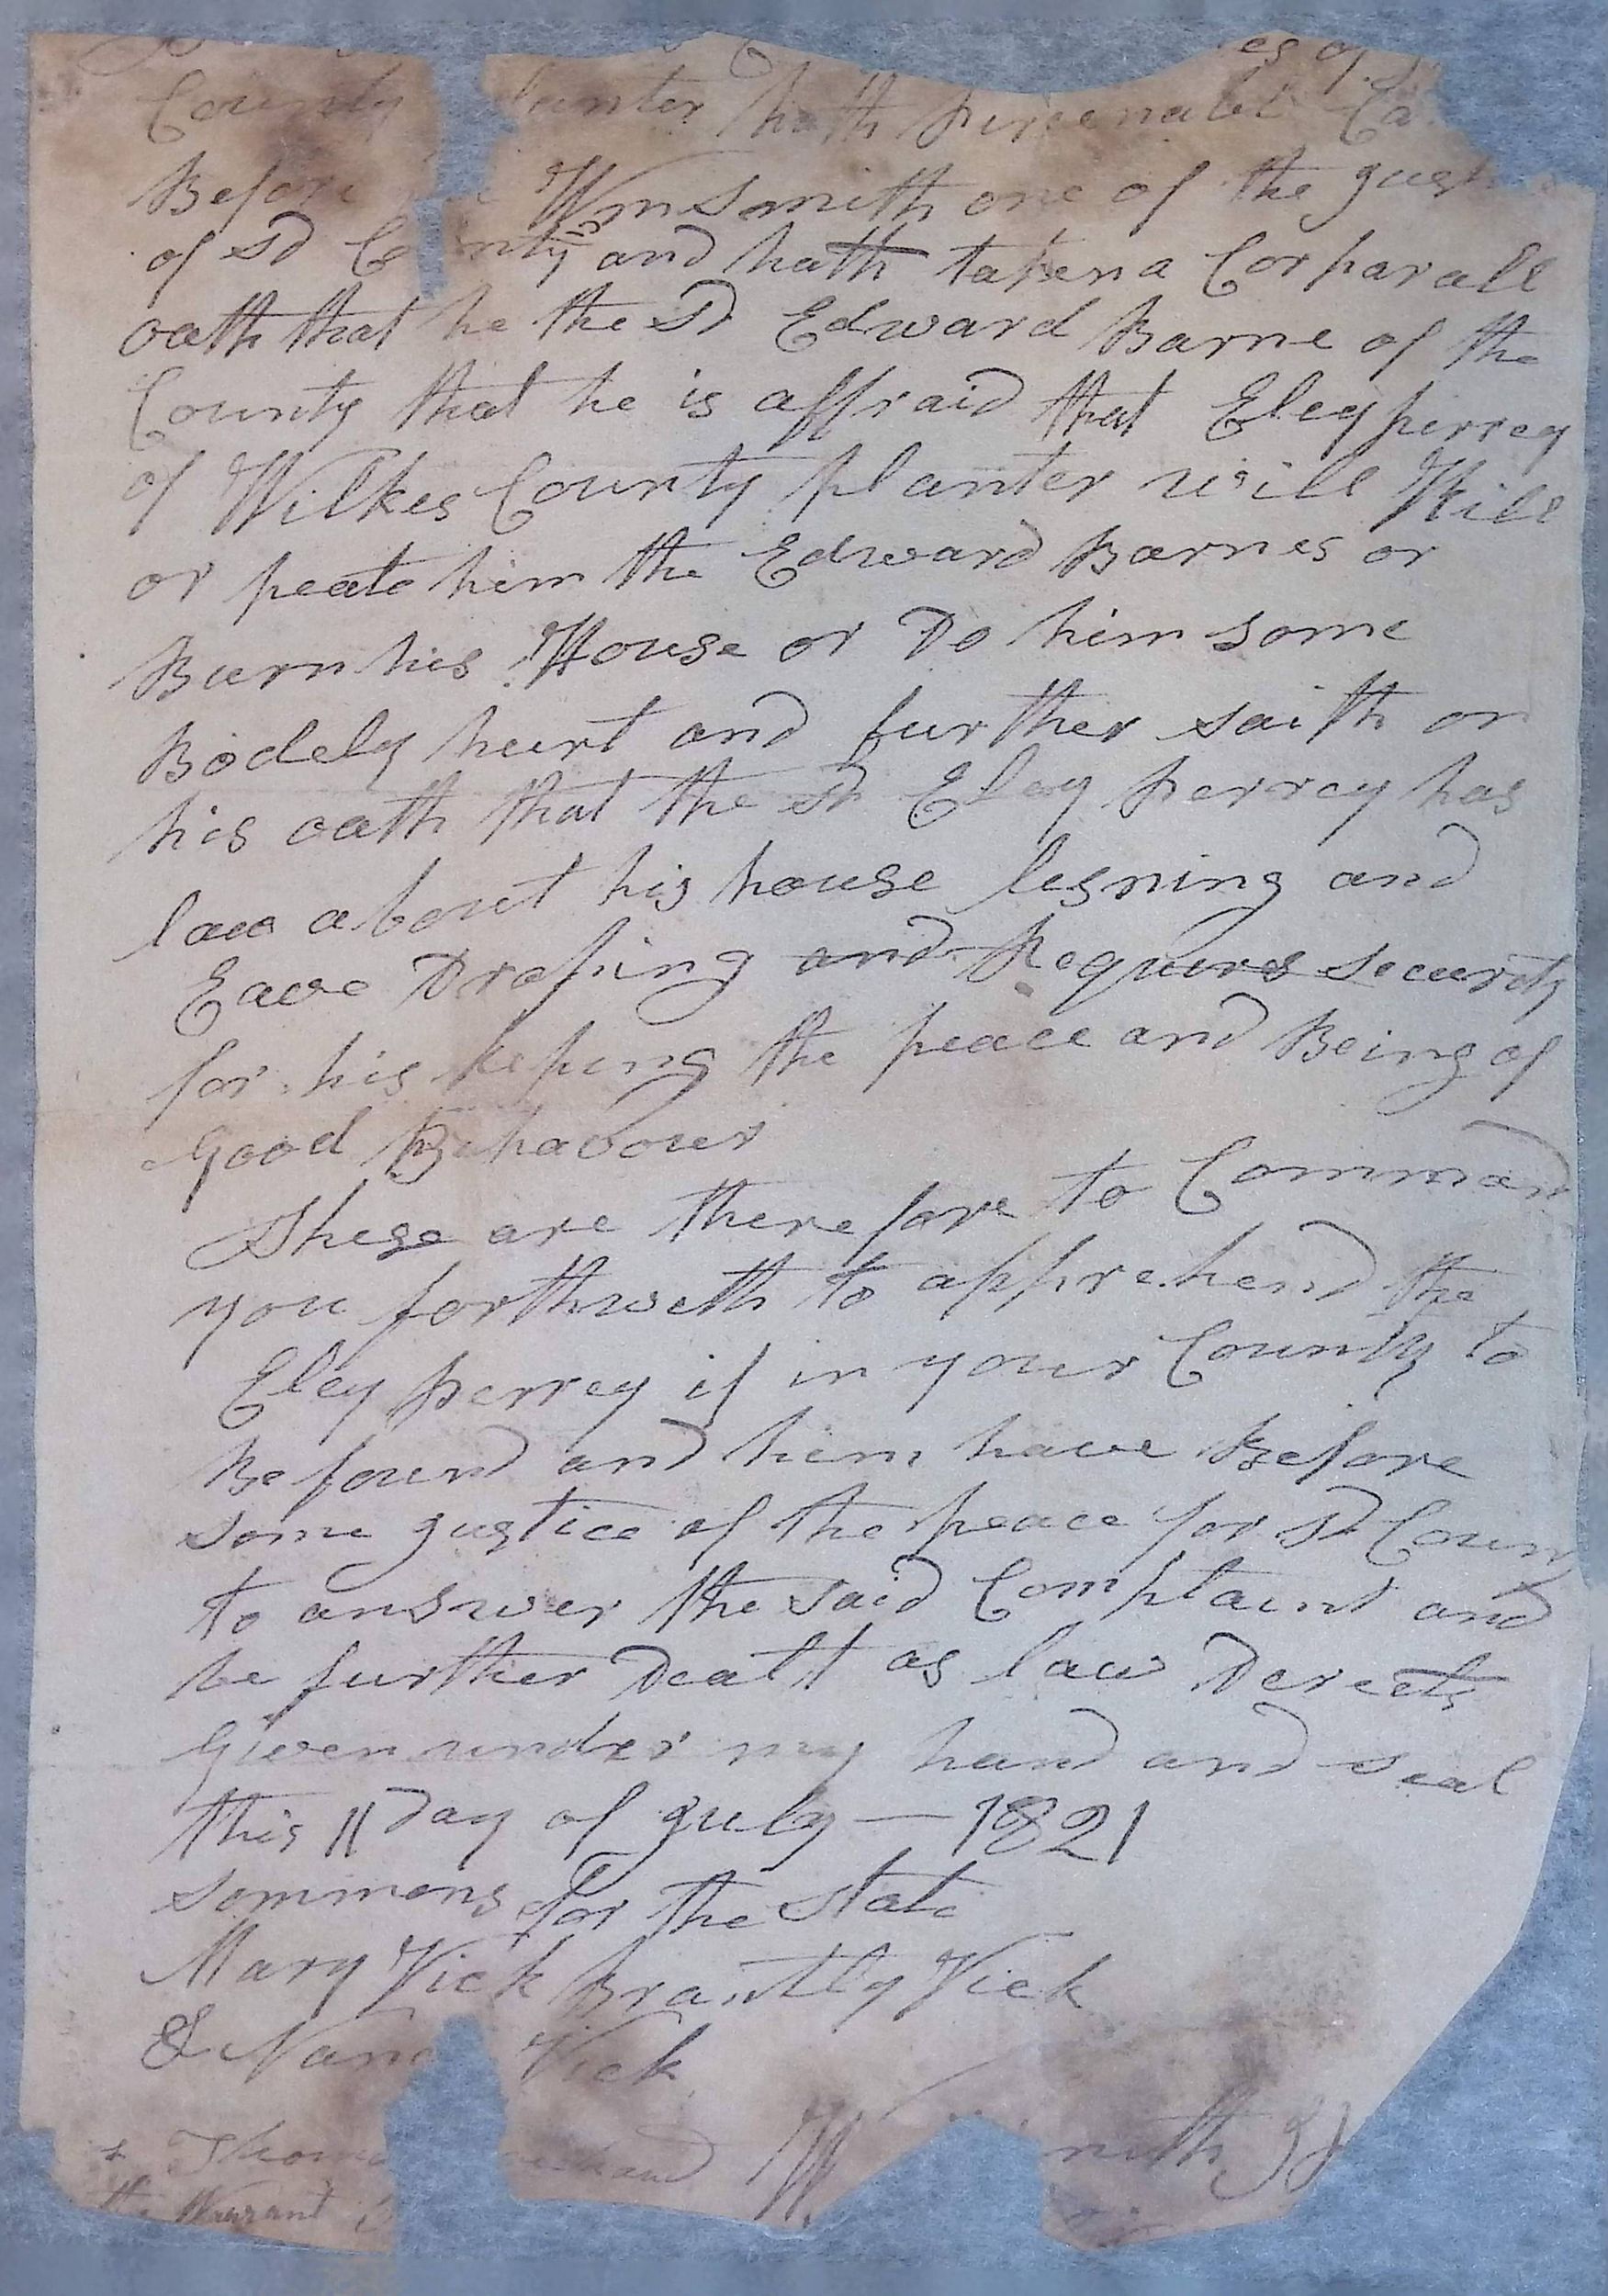 es of
County hath
Before Wm Smith one of the
of sd County and hath taken a Corparall
oath that he the sd Edward Barne of the
County that he is affraid that Eley perrey
of Wilkes County planter will Kill
or peate him the Edward Barnes or
Burn his House or Do him some
Bodely hurt and further saith on
his oath that the sd Eley perrey has
law about his house lesning and
Eave Droping and Requires security
for his keping the peace and Being of
Good Behavour
These are therefore to Comman
you forthweth to apprehend the
Eley perrey if in your County to
Be found and him have Before
some gustice of the peace for sd Coun
to answer the said Complaint and
be further Dealt as law Derects
Given under my hand and seal
this 11 day of guly — 1821
sommons for the State
Mary Vick Brantly Vick
& Nan Vick
Thoma W mith
the Warrant